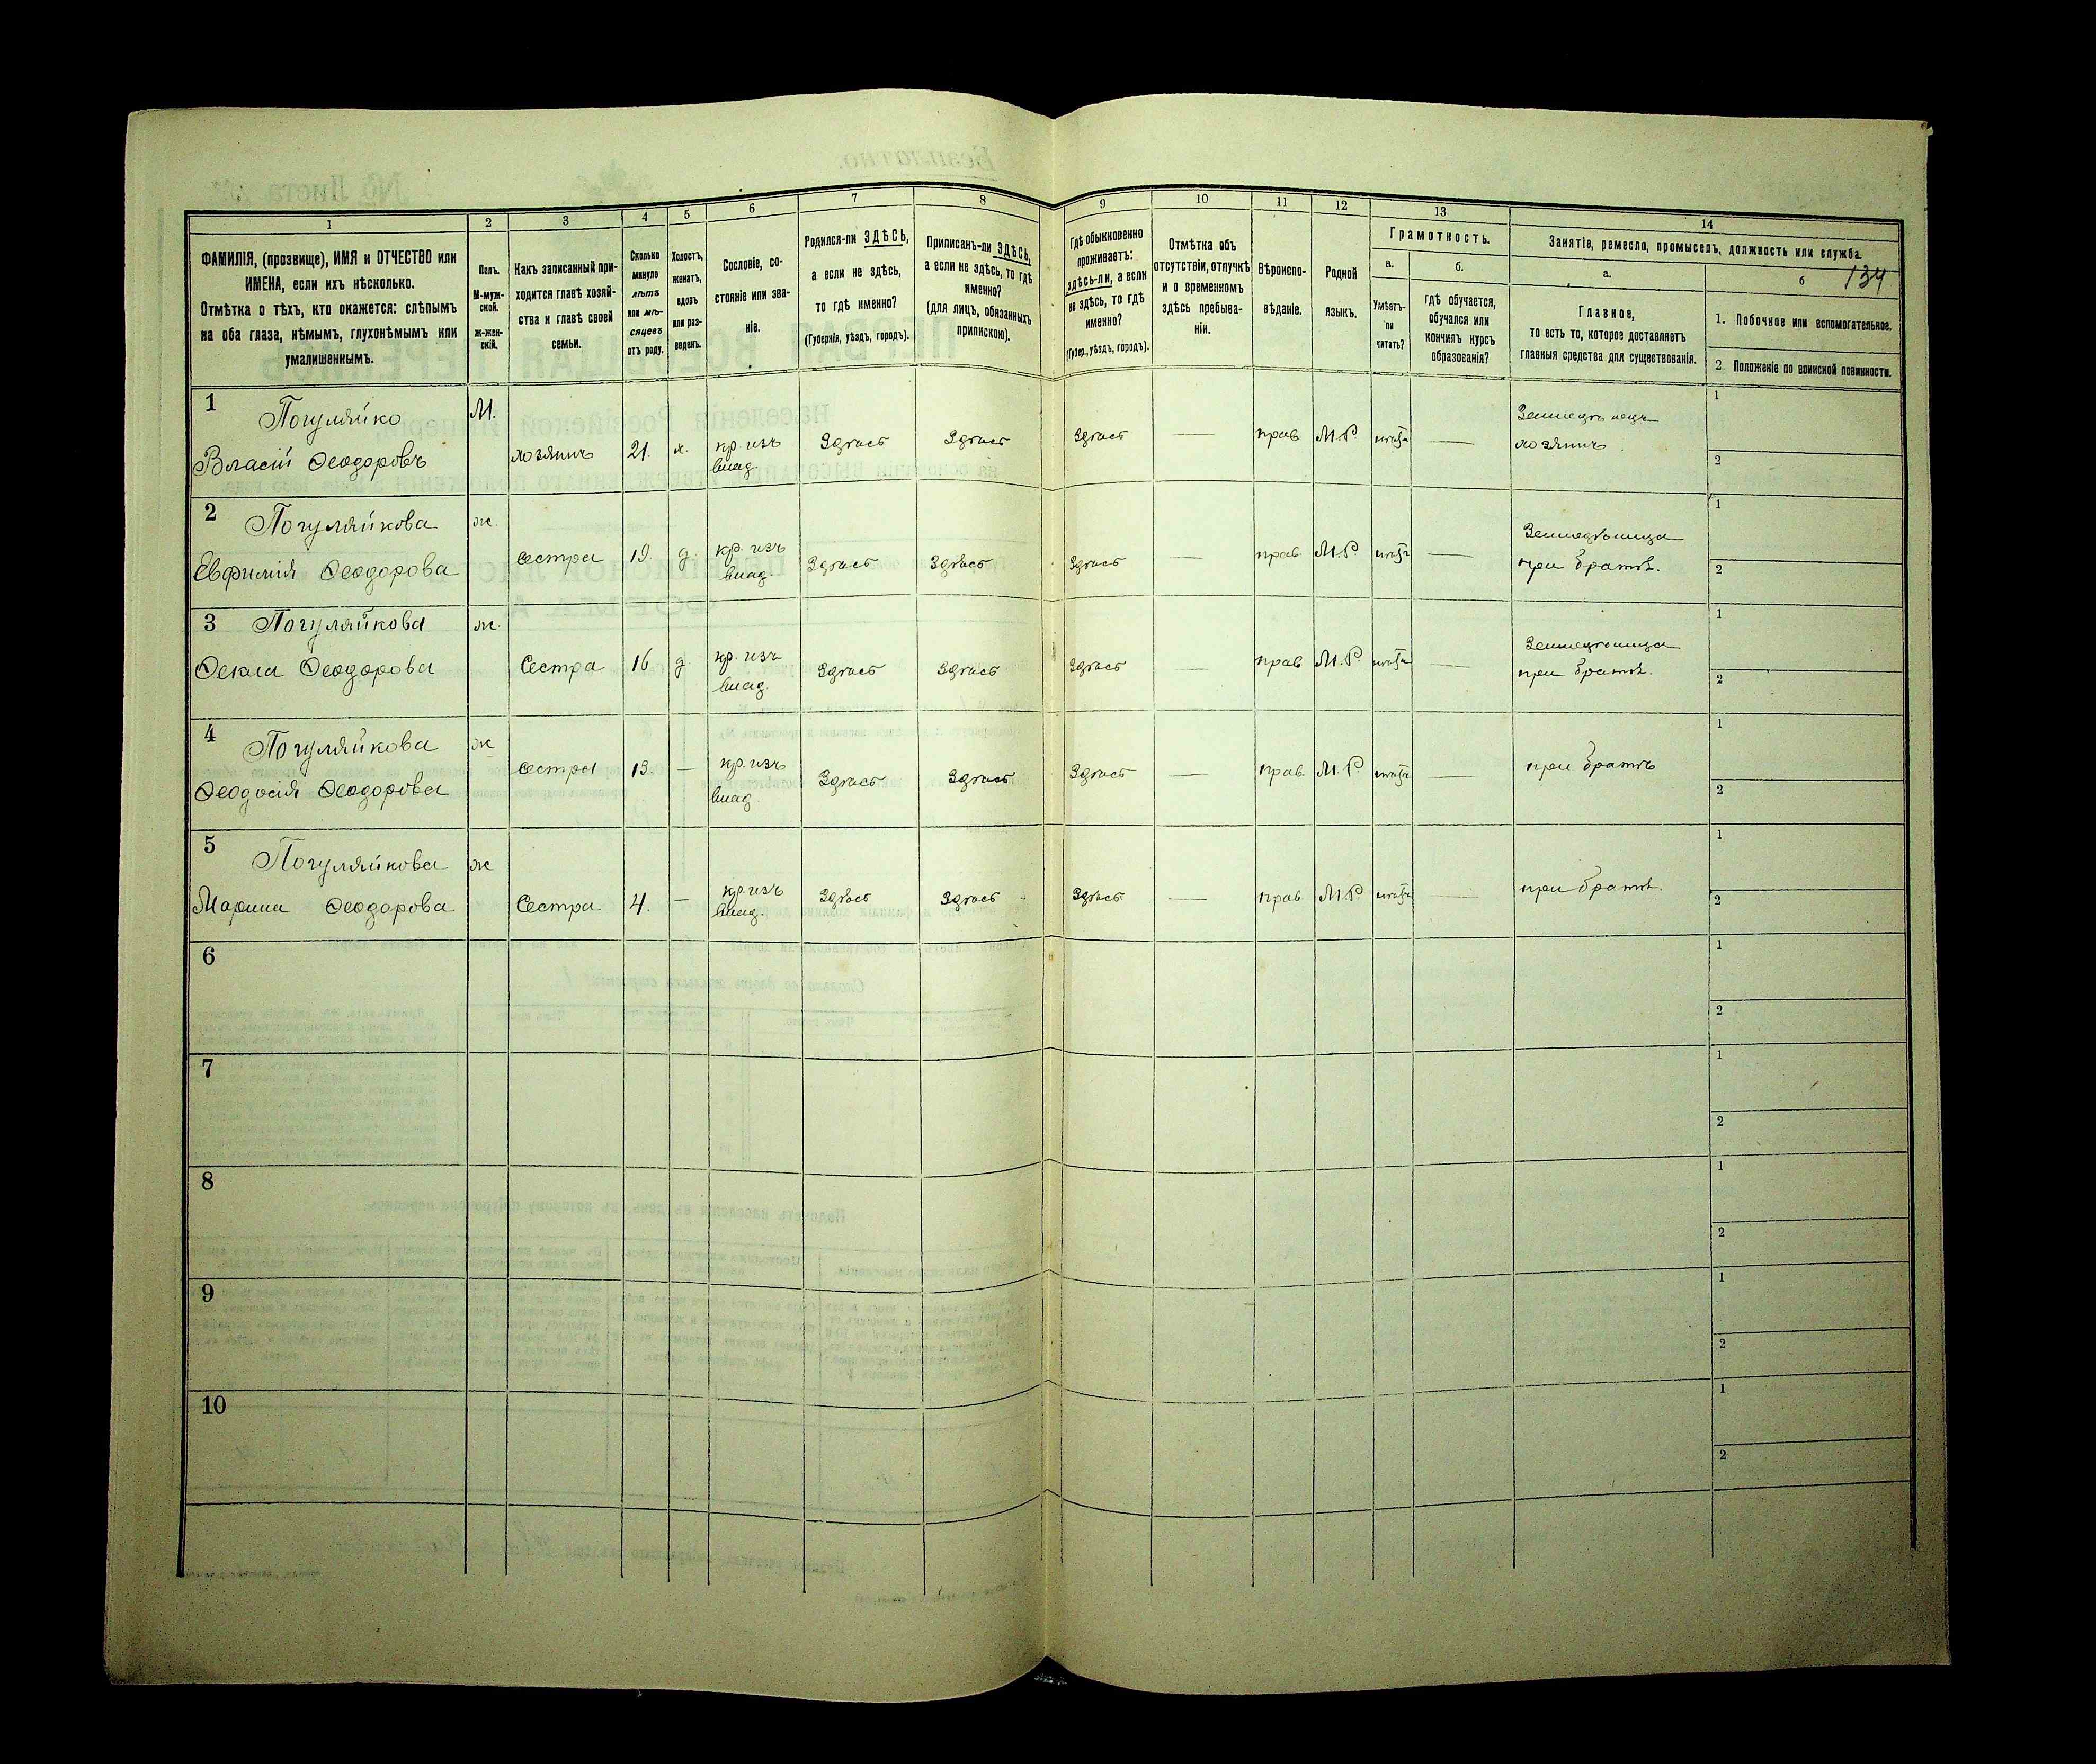 134
1 2 3 4 5 6 7 8 9 10 11 12 13 14
ФАМИЛІЯ, (прозвище), ИМЯ и ОТЧЕСТВО или
ИМЕНА, если ихъ нѣсколько.
Отмѣтка о тѣхъ, кто окажется: слѣпымъ
на оба глаза, нѣмымъ, глухонѣмымъ или
умалишеннымъ.
Полъ.
М-муж-
ской.
ж-жен-
скій.
Какъ записанный при-
ходится главѣ хозяй-
ства и главѣ своей
семьи.
Сколько
минуло
лѣтъ
или мѣ-
сяцевъ
отъ роду.
Холостъ,
женатъ,
вдовъ
или раз-
веденъ.
Сословіе, со-
стояніе или зва-
ніе.
Родился-ли ЗДѢСЬ,
а если не здѣсь,
то гдѣ именно?
(Губернія, уѣздъ, городъ).
Приписанъ-ли ЗДѢСЬ,
а если не здѣсь, то гдѣ
именно?
(для лицъ, обязанныхъ
припискою).
Гдѣ обыкновенно
проживаетъ:
здѣсь-ли, а если
не здѣсь, то гдѣ
именно?
(Губер., уѣздъ, городъ).
Отмѣтка объ
отсутствіи, отлучкѣ
и о временномъ
здѣсь пребыва-
ніи.
Вѣроиспо-
вѣданіе.
Родной
языкъ.
Грамотность.
а.
Умѣетъ-
ли
читать?
б.
гдѣ обучается,
обучался или
кончилъ курсъ
образованія?
Занятіе, ремесло, промыселъ, должность или служба.
а.
Главное,
то есть то, которое доставляетъ
главныя средства для существованія.
б
1. Побочное или вспомогательное.
2. Положеніе по воинской повинности.
1 Погуляйко М. 1
Власій Ѳеодоровъ хозяинъ 21. х. кр. изъ влад. Здѣсь Здѣсь Здѣсь — прав М.Р. нѣтъ — Земледѣлецъ хозяинъ 2
2 Погуляйкова ж. 1
Евфимія Ѳеодорова Сестра 19. д. кр. изъ влад. Здѣсь Здѣсь Здѣсь — прав М.Р. нѣтъ — Земледѣлица при братѣ. 2
3 Погуляйкова ж. 1
Ѳекла Ѳеодорова Сестра 16 д. кр. изъ влад. Здѣсь Здѣсь Здѣсь — прав М.Р. нѣтъ — Земледѣлица при братѣ. 2
4 Погуляйкова ж 1
Ѳеодосія Ѳеодорова Сестра 13. — кр. изъ влад. Здѣсь Здѣсь Здѣсь — прав. М.Р. нѣтъ — при братѣ 2
5 Погуляйкова ж 1
Марина Ѳеодорова Сестра 4. — кр. изъ влад. Здѣсь Здѣсь Здѣсь — прав М.Р. нѣтъ — при братѣ. 2
6 1
2
7 1
2
8 1
2
9 1
2
10 1
2